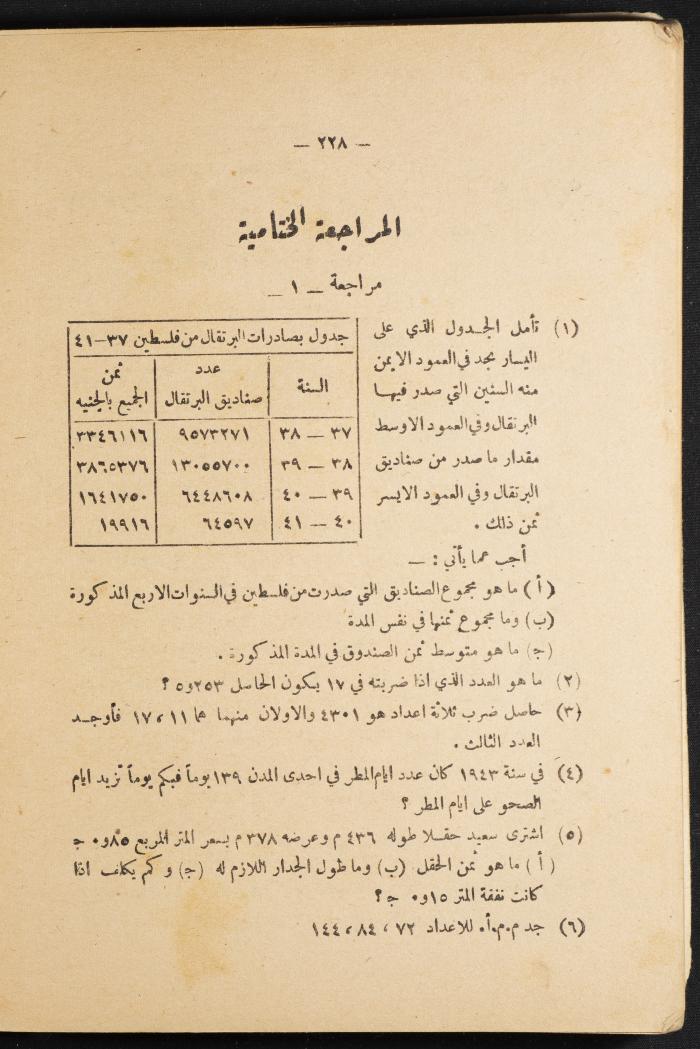 — ٢٢٨ —
المراجعة الختامية
مراجعة — ١ —
(١) تأمل الجدول الذي على
اليسار تجد في العمود الايمن
منه السنين التي صدر فيها
البرتقال وفي العمود الاوسط
مقدار ما صدر من صناديق
البرتقال وفي العمود الايسر
ثمن ذلك .
جدول بصادرات البرتقال من فلسطين ٣٧–٤١
السنة | عدد صناديق البرتقال | ثمن الجميع بالجنيه
٣٧ — ٣٨ | ٩٥٧٣٢٧١ | ٣٣٤٦١١٦
٣٨ — ٣٩ | ١٣٠٥٥٧٠٠ | ٣٨٦٥٣٧٦
٣٩ — ٤٠ | ٦٤٤٨٦٠٨ | ١٦٤١٧٥٠
٤٠ — ٤١ | ٦٤٥٩٧ | ١٩٩١٦
أجب عما يأتي : —
(أ) ما هو مجموع الصناديق التي صدرت من فلسطين في السنوات الاربع المذكورة
(ب) وما مجموع ثمنها في نفس المدة
(ج) ما هو متوسط ثمن الصندوق في المدة المذكورة .
(٢) ما هو العدد الذي اذا ضربته في ١٧ يكون الحاصل ٢٥٣و٥ ؟
(٣) حاصل ضرب ثلاثة اعداد هو ٤٣٠١ والاولان منهما هما ١١ ، ١٧ فأوجد
العدد الثالث .
(٤) في سنة ١٩٤٣ كان عدد ايام المطر في احدى المدن ١٣٩ يوماً فبكم يوماً تزيد ايام
الصحو على ايام المطر ؟
(٥) اشترى سعيد حقلا طوله ٤٣٦ م وعرضه ٣٧٨ م بسعر المتر المربع ٨٥و٠ ج
(أ) ما هو ثمن الحقل (ب) وما طول الجدار اللازم له (ج) وكم يكلف اذا
كانت نفقة المتر ١٥و٠ ج ؟
(٦) جد م.م.أ. للاعداد ٧٢ ، ٨٤ ، ١٤٤